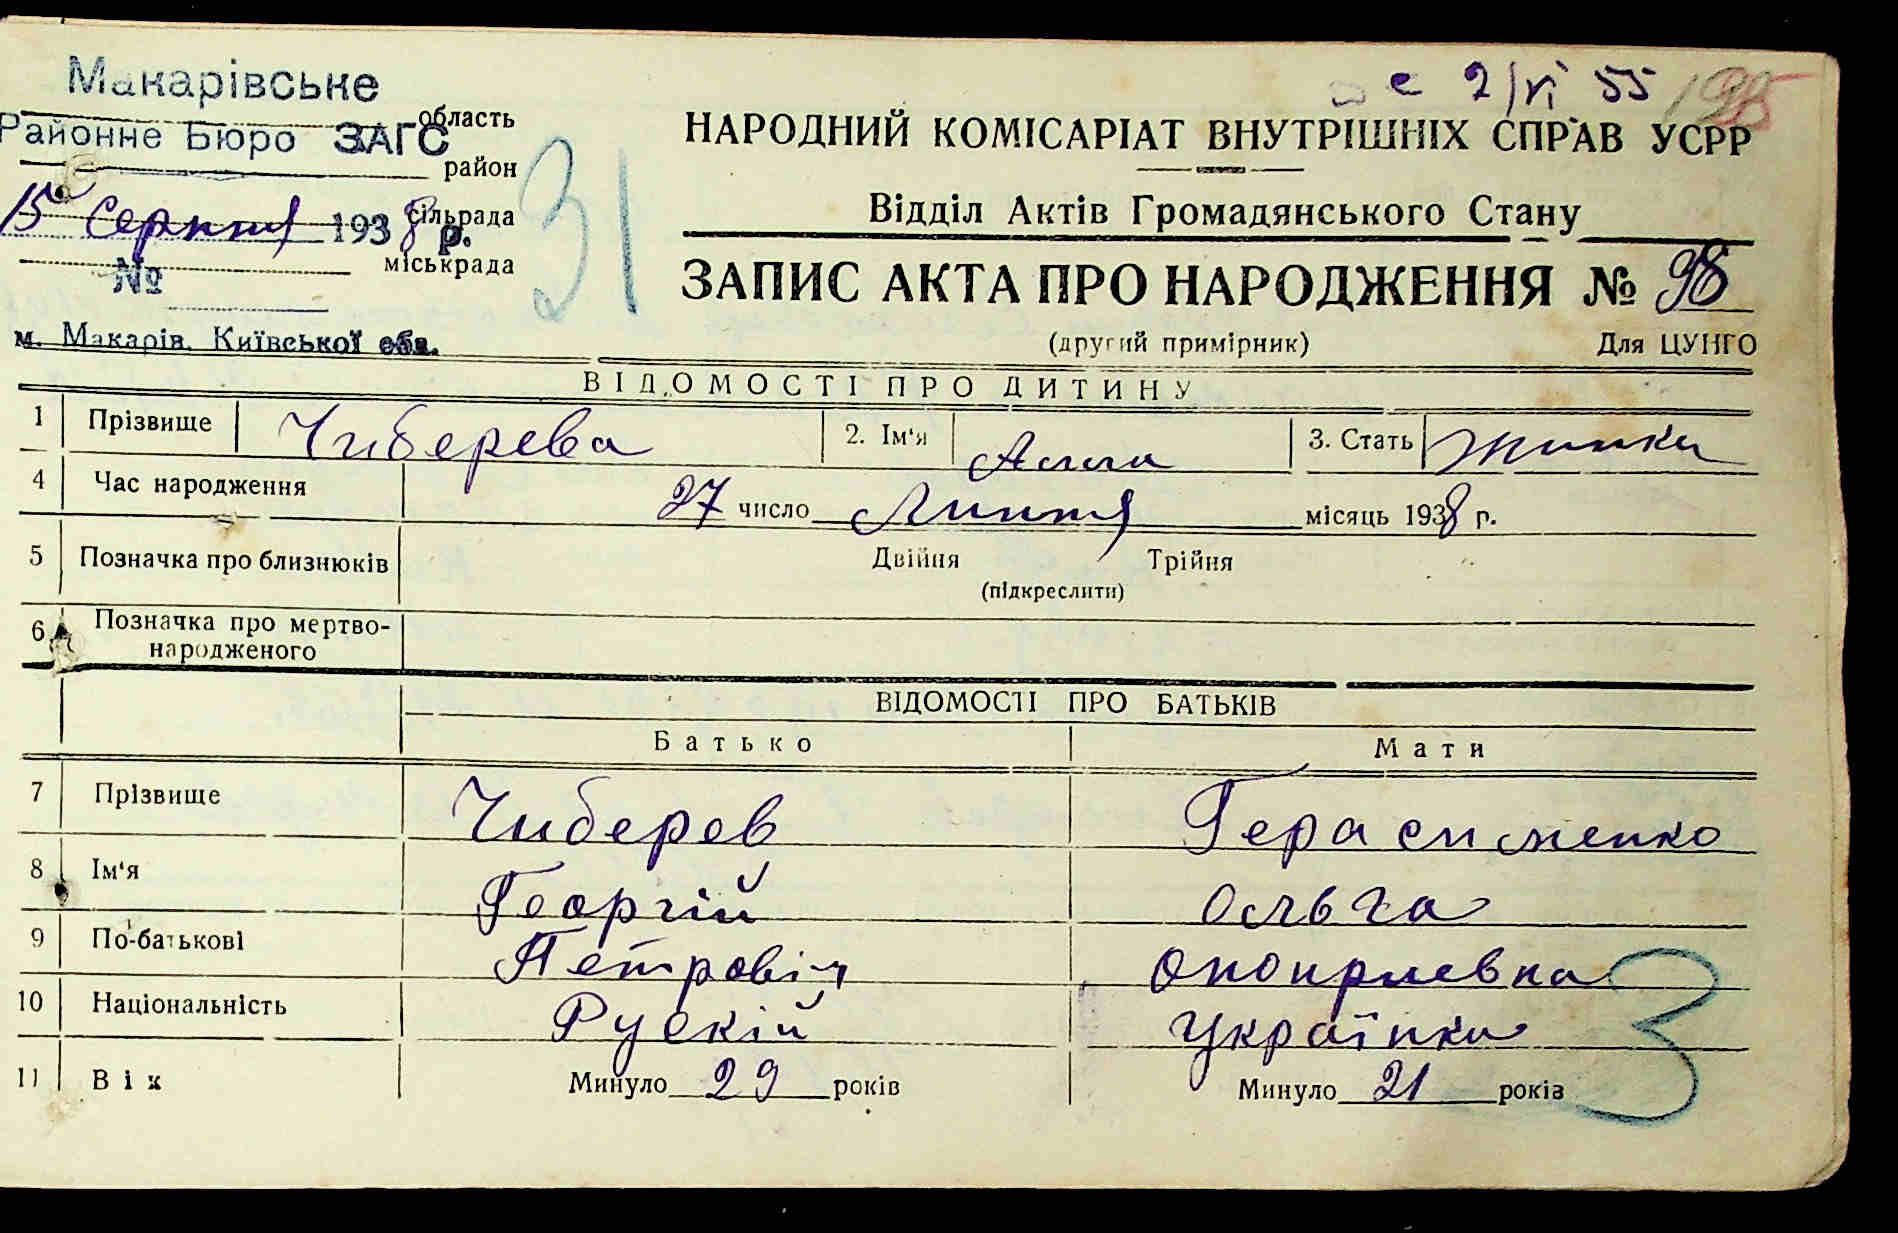 Макарівське
область
Районне Бюро ЗАГС
район
15 Серпня 1938 р.
сільрада
міськрада
№
м. Макарів, Київської обл.
31
е 2/VI 55
НАРОДНИЙ КОМІСАРІАТ ВНУТРІШНІХ СПРАВ УСРР
Відділ Актів Громадянського Стану
ЗАПИС АКТА ПРО НАРОДЖЕННЯ № 98
(другий примірник) Для ЦУНГО
ВІДОМОСТІ ПРО ДИТИНУ
1 Прізвище Чиберева 2. Ім'я Алла 3. Стать жинка
4 Час народження 27 число Липня місяць 1938 р.
5 Позначка про близнюків Двійня Трійня
(підкреслити)
6 Позначка про мертво-
народженого
ВІДОМОСТІ ПРО БАТЬКІВ
Батько Мати
7 Прізвище Чиберев Герасименко
8 Ім'я Георгій Ольга
9 По-батькові Петровіч Оноприевна
10 Національність Рускій Українка
11 Вік Минуло 29 років Минуло 21 років
3